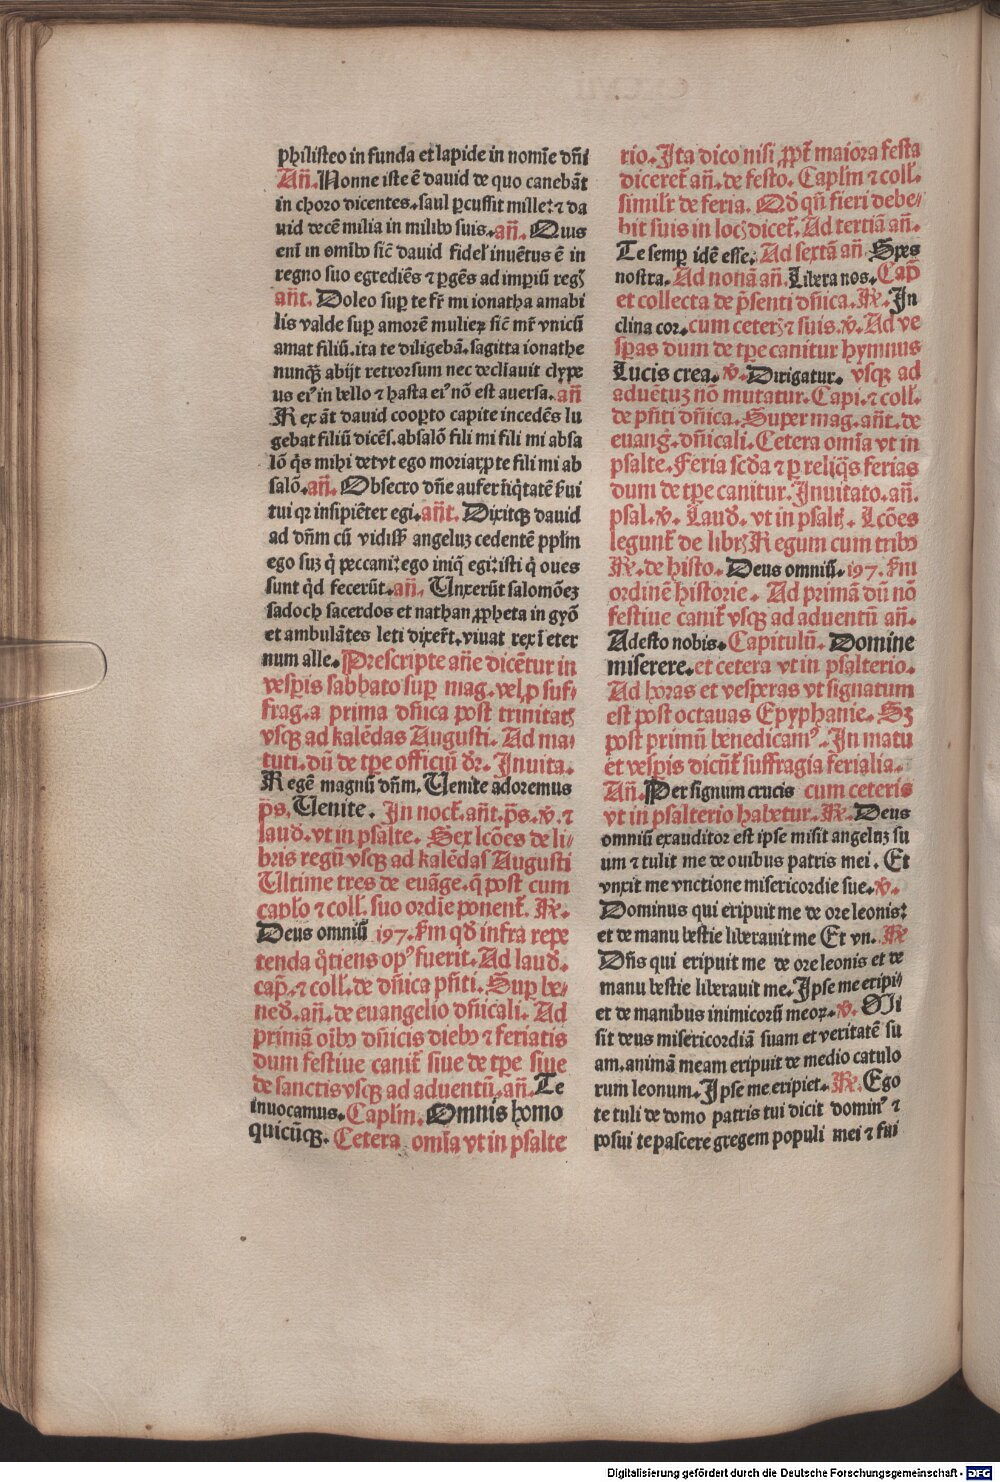 philisteo in funda et lapide in nomīe dn̄i
An̄. Nonne iste ē dauid de quo canebāt
in choro dicentes. saul ꝑcussit mille: ⁊ da
uid decē milia in milibꝰ suis. an̄. Quis
eni in omībꝰ sic̄ dauid fidel' inuētus ē in
regno suo egrediēs ⁊ ꝑgēs ad imperiū regꝭ
an̄t. Doleo suꝑ te fr̄ mi ionatha amabi
lis valde suꝑ amorē mulieꝝ sic̄ mr̄ vnicū
amat filiū. ita te diligebā. sagitta ionathe
nunqꝫ abijt retrorsum nec declīauit clype
us eiꝰ in bello ⁊ hasta eiꝰ nō est auersa. an̄
Rex āt dauid cooꝑto capite incedēs lu
gebat filiū dicēs. absalō fili mi fili mi absa
lō q̄s mihi det vt ego moriar ꝓ te fili mi ab
salō. an̄. Obsecro dn̄e aufer īiq̄tatē ẜui
tui qꝛ insipiēter egi. an̄t. Dixitqꝫ dauid
ad dn̄m cū vidissꝫ angelum cedentē pplm̄
ego suꝫ q̇ peccaui: ego iniq̄ egi: isti q̇ oues
sunt qd̄ fecerūt. an̄. Unxerūt salomōeꝫ
sadoch sacerdos et nathan ꝓpheta in gyō
et ambulātes leti dixer̄t. viuat rex ī eter
num alle. Prescripte an̄e dicētur in
vesꝑis sabbato suꝑ mag. vel ꝓ suf-
frag. a prima dn̄ica post trinitatꝭ
vsqꝫ ad kalēdas Augusti. Ad ma-
tuti. dū de tꝑe officiū dr̄. Inuita.
Regē magnū dn̄m. Uenite adoremus
p̄s. Uenite. In noct̄. an̄t. p̄s. v̄. ⁊
laud̄. vt in psalte. Sex lc̄ōes de li-
bris regū vsqꝫ ad kalēdas Augusti
Ultime tres de euāge. q̄ post cum
caplo ⁊ coll. suo ordīe ponent̄. R̄.
Deus omniū 197. Fm qd̄ infra repe
tenda q̄tiens opꝰ fuerit. Ad laud̄.
cap̄. ⁊ coll. de dn̄ica pn̄ti. Suꝑ be-
ned̄. an̄. de euangelio dn̄icali. Ad
primā oībꝰ dn̄icis diebꝰ ⁊ feriatis
dum festiue canit̄ siue de tꝑe siue
de sanctis vsqꝫ ad aduentū. an̄. Te
inuocamus. Caplm̄. Omnis homo
quicūqꝫ. Cetera omīa vt in psalte
rio. Ita dico nisi ꝓpt̄ maiora festa
diceret̄ an̄. de festo. Caplm̄ ⁊ coll.
simil'r de feria. Qd̄ qn̄ fieri debe-
bit suis in locꝭ dicet̄. Ad tertiā an̄.
Te semꝑ idē esse. Ad sextā an̄ Spes
nostra. Ad nonā an̄. Libera nos. Cap̄
et collecta de p̄senti dn̄ica. R̄. In
clina cor. cum ceterꝭ ⁊ suis. v̄. Ad ve
sꝑas dum de tꝑe canitur hymnus
Lucis crea. v̄. Dirigatur. vsqꝫ ad
aduētuꝫ nō mutatur. Capi. ⁊ coll.
de pn̄ti dn̄ica. Super mag. an̄t. de
euanḡ. dn̄icali. Cetera omīa vt in
psalte. Feria scd̄a ⁊ ꝑ reliq̄s ferias
dum de tꝑe canitur. Inuitato. an̄.
psal. v̄. Laud̄. vt in psaltꝭ. Lc̄ōes
legunt̄ de librꝭ Regum cum tribꝰ
R̄. de histo. Deus omniū. 197. Fm
ordinē historie. Ad primā dū nō
festiue canit̄ vsqꝫ ad aduentū an̄.
Adesto nobis. Capitulū. Domine
miserere. et cetera vt in psalterio.
Ad horas et vesperas vt signatum
est post octauas Epyphanie. Sꝫ
post primū benedicamꝰ. In matu
et vesꝑis dicūt̄ suffragia ferialia.
An̄. Per signum crucis cum ceteris
vt in psalterio habetur. R̄. Deus
omniū exauditor est ipse misit angeluꝫ su
um ⁊ tulit me de ouibus patris mei. Et
vnxit me vnctione misericordie sue. v̄.
Dominus qui eripuit me de ore leonis:
et de manu bestie liberauit me Et vn. R̄
Dn̄s qui eripuit me de ore leonis et de
manu bestie liberauit me. Ipse me eripi-
et de manibus inimicorū meoꝝ. v̄. Mi
sit deus misericordiā suam et veritatē su
am. animā meam eripuit de medio catulo
rum leonum. Ipse me eripiet. R̄. Ego
te tuli de domo patris tui dicit dominꝰ ⁊
posui te pascere gregem populi mei ⁊ fui
Digitalisierung gefördert durch die Deutsche Forschungsgemeinschaft - DFG